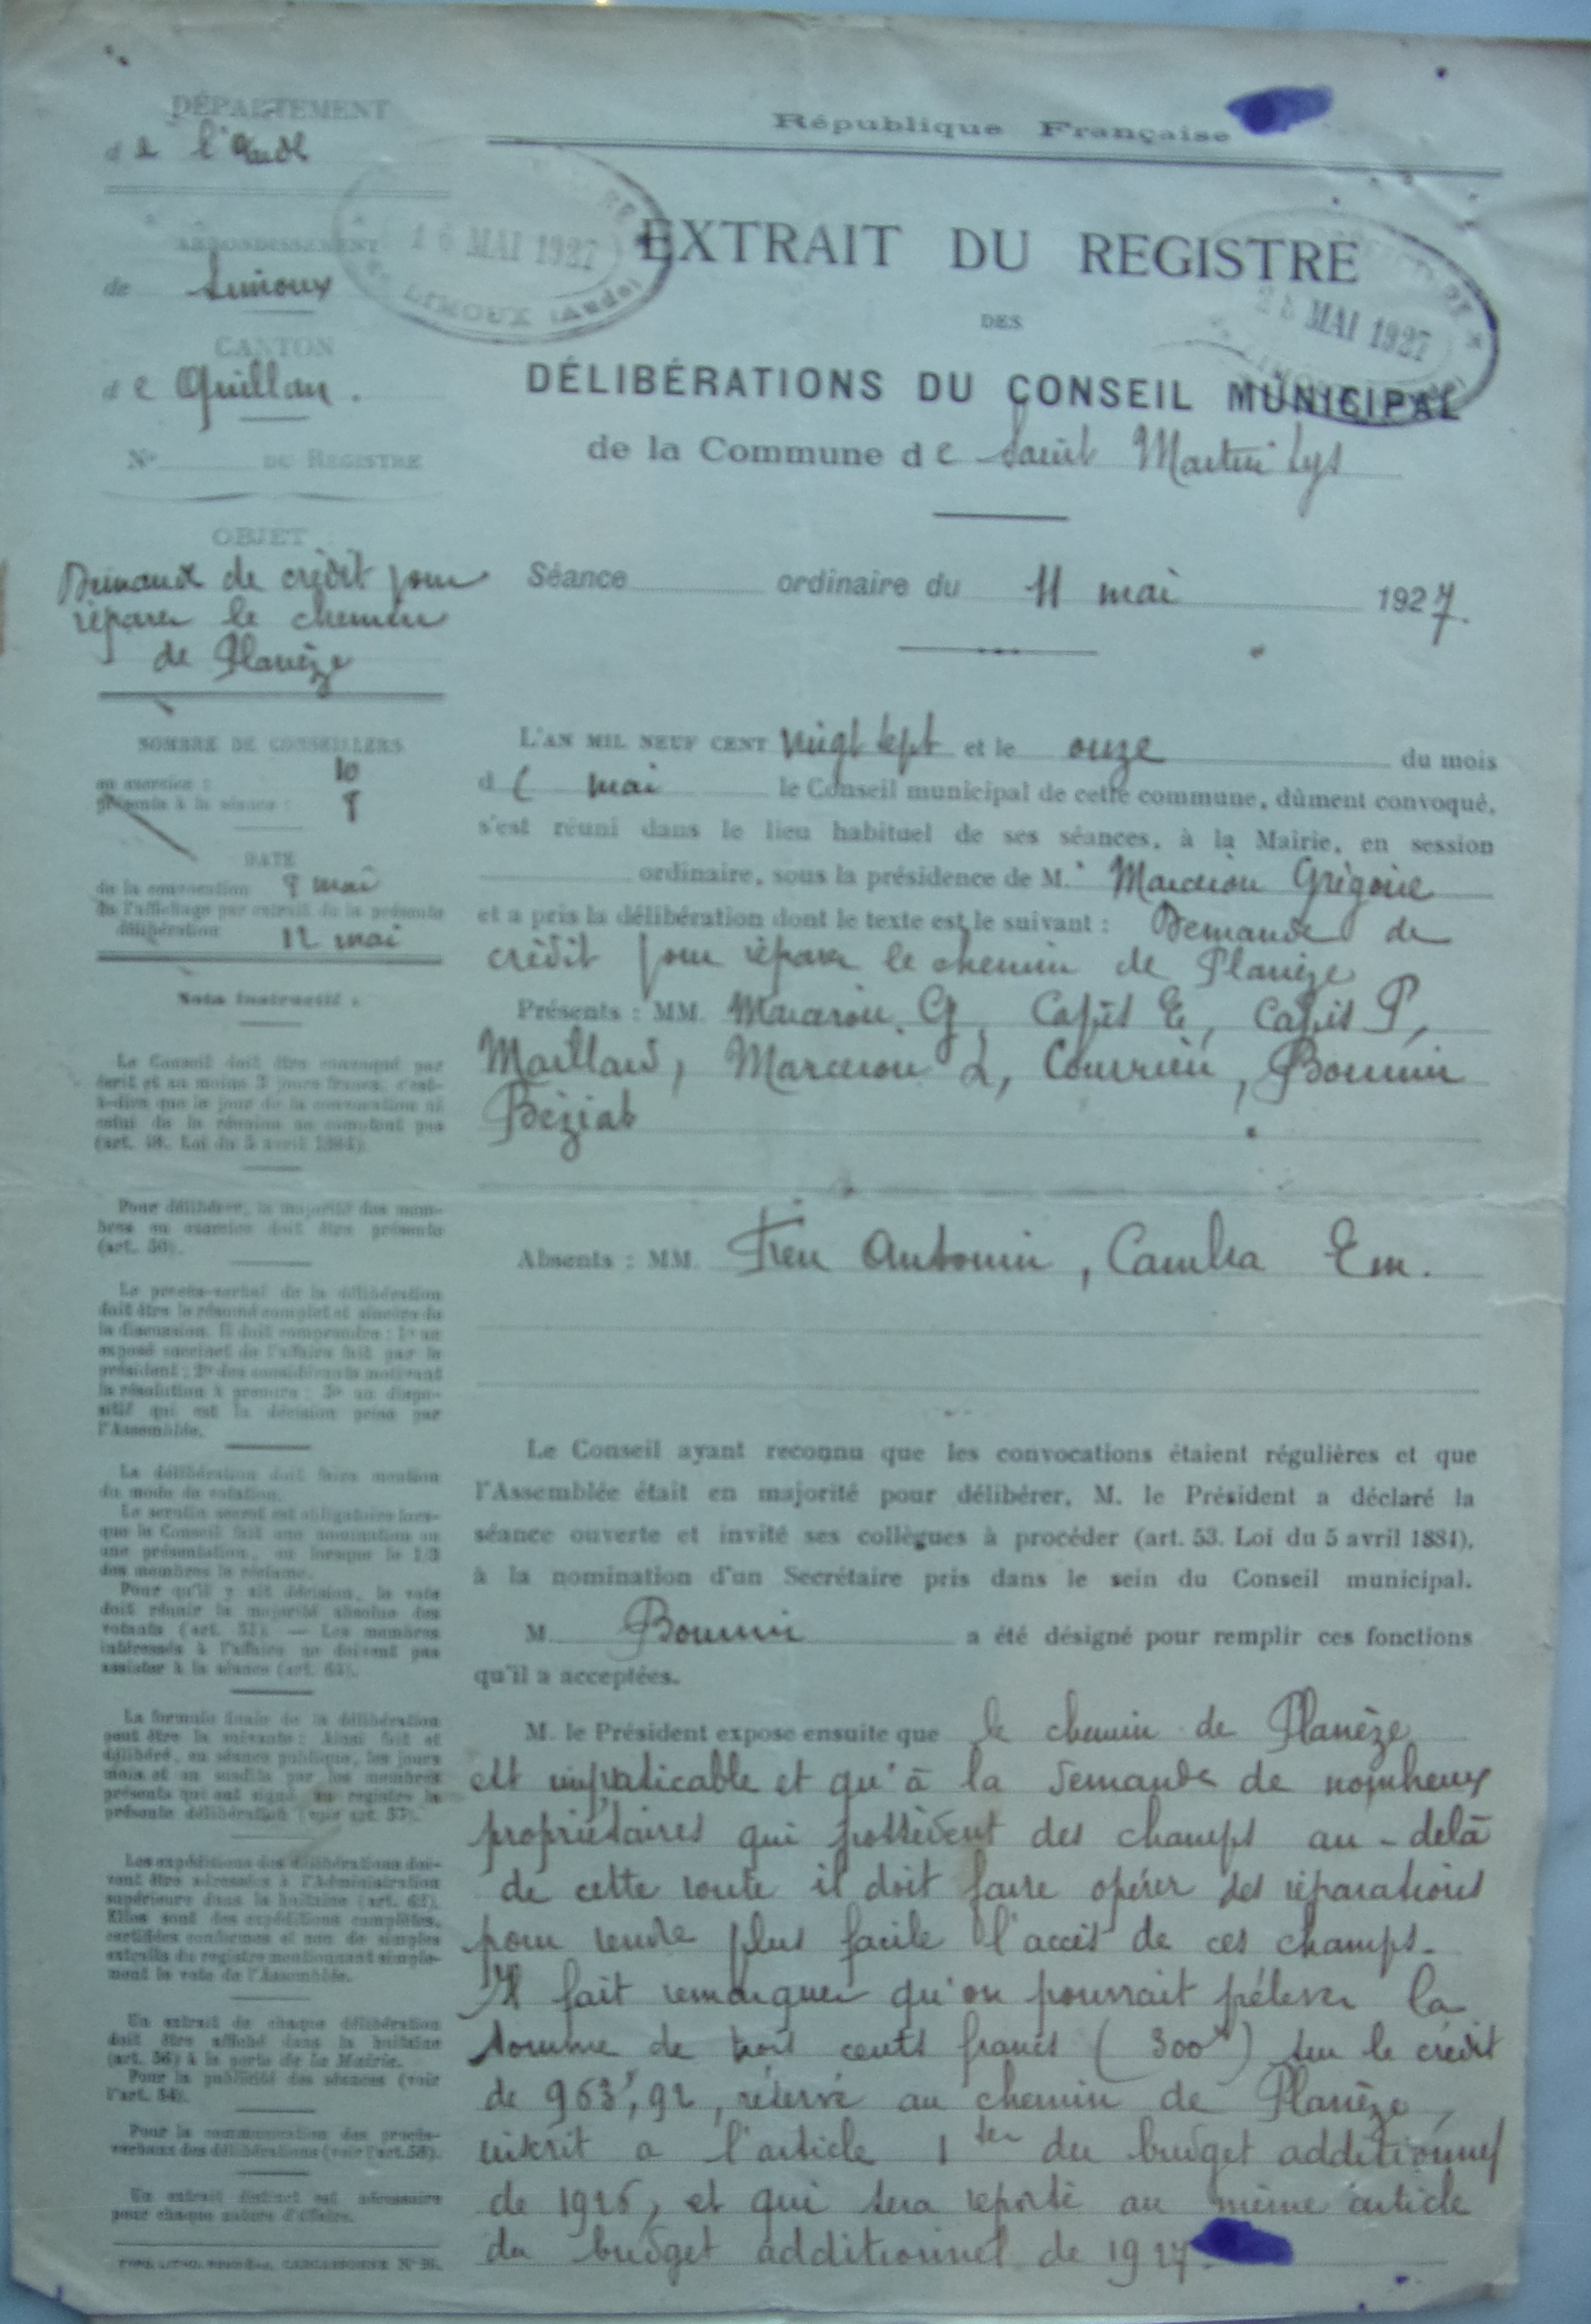 DÉPARTEMENT
de l'Aude
République Française
ARRONDISSEMENT
de Limoux
16 MAI 1927
LIMOUX (Aude)
EXTRAIT DU REGISTRE
MAI 1927
DES
CANTON
de Quillan.
DÉLIBÉRATIONS DU CONSEIL MUNICIPAL
de la Commune de Saint Martin Lys
No DU REGISTRE
OBJET
Demande de crédit pour
réparer le chemin
de Planèze
Séance ordinaire du 11 mai 1927.
NOMBRE DE CONSEILLERS
en exercice : 10
présents à la séance : 8
DATE
de la convocation 8 mai
de l'affichage par extrait de la présente
délibération 12 mai
L'AN MIL NEUF CENT vingt sept et le onze du mois
de mai le Conseil municipal de cette commune, dûment convoqué,
s'est réuni dans le lieu habituel de ses séances, à la Mairie, en session
ordinaire, sous la présidence de M. Marcerou Grégoire
et a pris la délibération dont le texte est le suivant : Demande de
crédit pour réparer le chemin de Planèze
Présents : MM. Marcerou. G, Capis E, Capis P,
Maillard, Marcerou L, Bounin
Béziat
Absents : MM. Antonin, Em.
Nota Instructif :
Le Conseil doit être convoqué par
écrit et au moins 3 jours francs, c'est-
à-dire que le jour de la convocation ni
celui de la réunion ne comptent pas
(art. 48. Loi du 5 avril 1884).
Pour délibérer, la majorité des mem-
bres en exercice doit être présente
(art. 50).
Le procès-verbal de la délibération
doit être le résumé complet et sincère de
la discussion. Il doit comprendre : 1o un
exposé succinct de l'affaire fait par le
président ; 2o des considérants motivant
la résolution à prendre ; 3o un dispo-
sitif qui est la décision prise par
l'Assemblée.
La délibération doit faire mention
du mode de votation.
Le scrutin secret est obligatoire lors-
que le Conseil fait une nomination ou
une présentation, ou lorsque le 1/3
des membres le réclame.
Pour qu'il y ait décision, le vote
doit réunir la majorité absolue des
votants (art. 51). — Les membres
intéressés à l'affaire ne doivent pas
assister à la séance (art. 64).
La formule finale de la délibération
peut être la suivante : Ainsi fait et
délibéré, en séance publique, les jours
mois et an susdits par les membres
présents qui ont signé au registre la
présente délibération (voir art. 57).
Les expéditions des délibérations doi-
vent être adressées à l'Administration
supérieure dans la huitaine (art. 62).
Elles sont des expéditions complètes,
certifiées conformes et non de simples
extraits du registre mentionnant simple-
ment le vote de l'Assemblée.
Un extrait de chaque délibération
doit être affiché dans la huitaine
(art. 56) à la porte de la Mairie.
Pour la publicité des séances (voir
l'art. 54).
Pour la communication des procès-
verbaux des délibérations (voir l'art. 58).
Un extrait distinct est nécessaire
pour chaque nature d'affaire.
Le Conseil ayant reconnu que les convocations étaient régulières et que
l'Assemblée était en majorité pour délibérer, M. le Président a déclaré la
séance ouverte et invité ses collègues à procéder (art. 53. Loi du 5 avril 1884),
à la nomination d'un Secrétaire pris dans le sein du Conseil municipal.
M. Bounin a été désigné pour remplir ces fonctions
qu'il a acceptées.
M. le Président expose ensuite que le chemin de Planèze
est impraticable et qu'à la demande de nombreux
propriétaires qui possèdent des champs au-delà
de cette route il doit faire opérer des réparations
pour rendre plus facile l'accès de ces champs.
Il fait remarquer qu'on pourrait prélever la
somme de trois cents francs (300f) sur le crédit
de 963f,92, réservé au chemin de Planèze,
inscrit a l'article 1er du budget additionnel
de 1926, et qui sera reporté au même article
du budget additionnel de 1927.